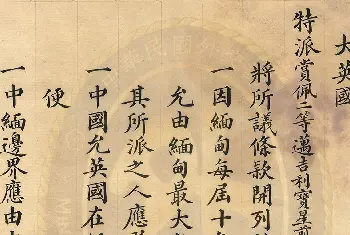 大英國
特派賞佩二等邁吉利寶星前
將所議條款開列
一因緬甸每屆十
允由緬甸最大
其所派之人應
一中國允英國在
便
一中緬邊界應由